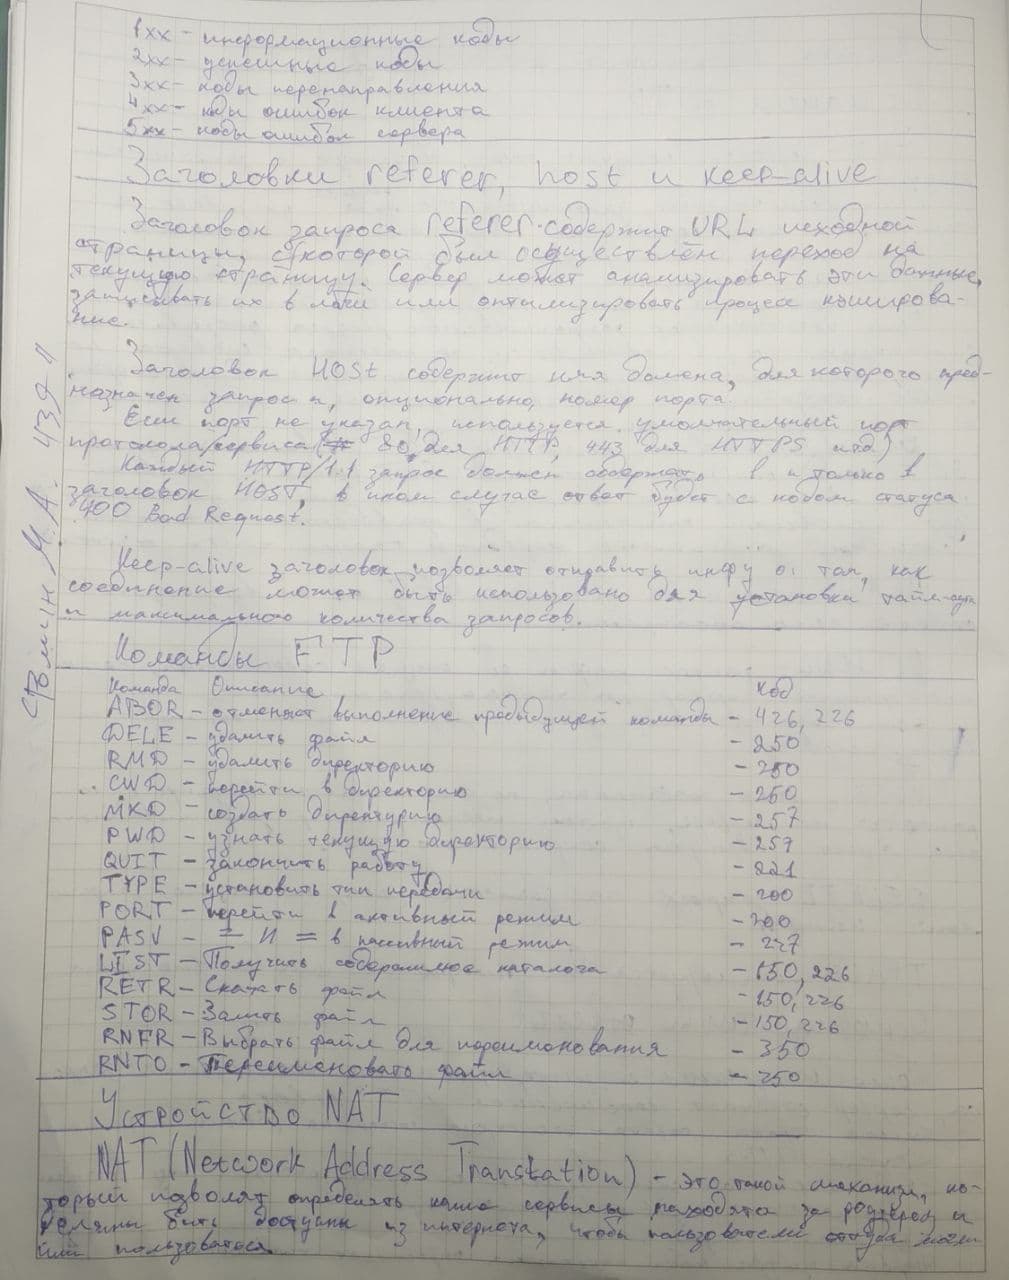 1xx - информационные коды
2xx - успешные коды
3xx - коды перенаправления
4xx - коды ошибок клиента
5xx - коды ошибок сервера
Заголовки referer, host и keep-alive
Заголовок запроса referer содержит URL исходной
страницы, с которой был осуществлён переход на
текущую страницу. Сервер может анализировать эти данные,
записывать их в логи или оптимизировать процесс кэширова-
ние.
Заголовок HOST содержит имя домена, для которого пред-
назначен запрос и, опционально, номер порта.
Если порт не указан, используется умолчательный порт
протокола/сервиса (80 для HTTP, 443 для HTTPS итд)
Каждый HTTP/1.1 запрос должен содержать 1 и только 1
заголовок HOST, в ином случае ответ будет с кодом статуса
400 Bad Request.
Keep-alive заголовок позволяет отправить инфу о том, как
соединение может быть использовано для установки тайм-аута
и максимального количества запросов.
Фомин М.А. 439-1
Команды FTP
Команда Описание код
ABOR - отменяет выполнение предыдущей команды - 426, 226
DELE - удалить файл - 250
RMD - удалить директорию - 250
CWD - перейти в директорию - 250
MKD - создать директорию - 257
PWD - узнать текущую директорию - 257
QUIT - закончить работу - 221
TYPE - установить тип передачи - 200
PORT - перейти в активный режим - 200
PASV - = И = в пассивный режим - 227
LIST - Получить содержимое каталога - 150, 226
RETR - Скачать файл - 150, 226
STOR - Залить файл - 150, 226
RNFR - Выбрать файл для переименования - 350
RNTO - Переименовать файл - 250
Устройство NAT
NAT (Network Address Translation) - это такой механизм, ко-
торый позволят определять какие сервисы находятся за роутером и
должны быть доступны из интернета, чтобы пользователи оттуда могли
ими пользоваться